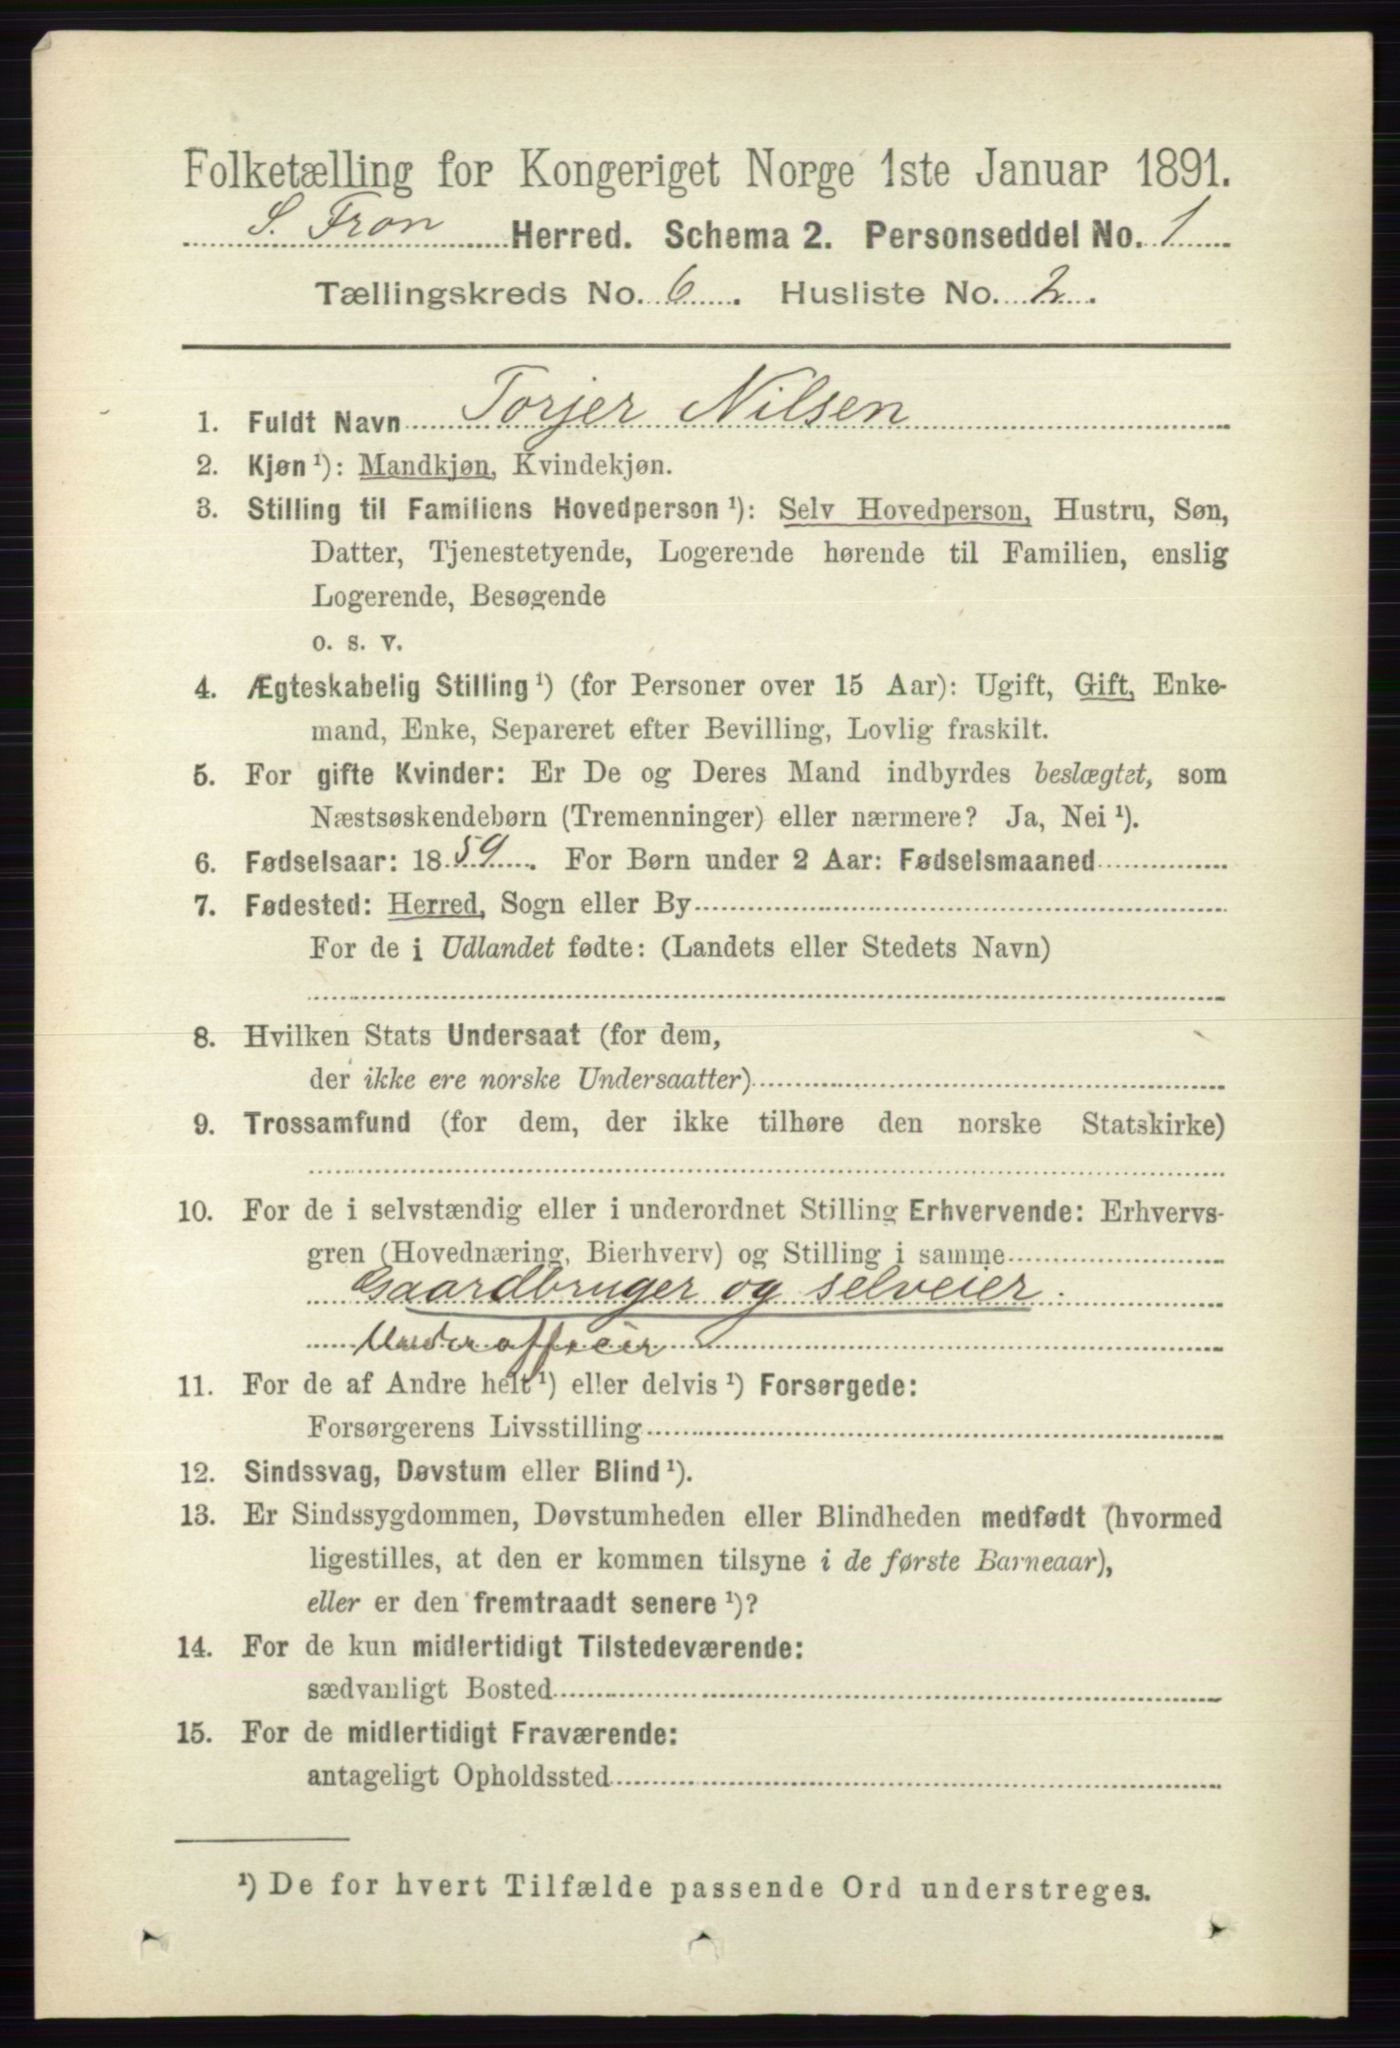 Folketælling for Kongeriget Norge 1ste Januar 1891.
S. Fron Herred. Schema 2. Personseddel No. 1
Tællingskreds No. 6. Husliste No. 2.
1. Fuldt Navn Torjer Nilsen
2. Kjøn ¹): Mandkjøn, Kvindekjøn.
3. Stilling til Familiens Hovedperson ¹): Selv Hovedperson, Hustru, Søn,
Datter, Tjenestetyende, Logerende hørende til Familien, enslig
Logerende, Besøgende
o. s. v.
4. Ægteskabelig Stilling ¹) (for Personer over 15 Aar): Ugift, Gift, Enke-
mand, Enke, Separeret efter Bevilling, Lovlig fraskilt.
5. For gifte Kvinder: Er De og Deres Mand indbyrdes beslægtet, som
Næstsøskendebørn (Tremenninger) eller nærmere? Ja, Nei ¹).
6. Fødselsaar: 1859. For Børn under 2 Aar: Fødselsmaaned
7. Fødested: Herred, Sogn eller By
For de i Udlandet fødte: (Landets eller Stedets Navn)
8. Hvilken Stats Undersaat (for dem,
der ikke ere norske Undersaatter)
9. Trossamfund (for dem, der ikke tilhøre den norske Statskirke)
10. For de i selvstændig eller i underordnet Stilling Erhvervende: Erhvervs-
gren (Hovednæring, Bierhverv) og Stilling i samme
Gaardbruger og selveier.
Underofficier
11. For de af Andre helt ¹) eller delvis ¹) Forsørgede:
Forsørgerens Livsstilling
12. Sindssvag, Døvstum eller Blind ¹).
13. Er Sindssygdommen, Døvstumheden eller Blindheden medfødt (hvormed
ligestilles, at den er kommen tilsyne i de første Barneaar),
eller er den fremtraadt senere ¹)?
14. For de kun midlertidigt Tilstedeværende:
sædvanligt Bosted
15. For de midlertidigt Fraværende:
antageligt Opholdssted
¹) De for hvert Tilfælde passende Ord understreges.